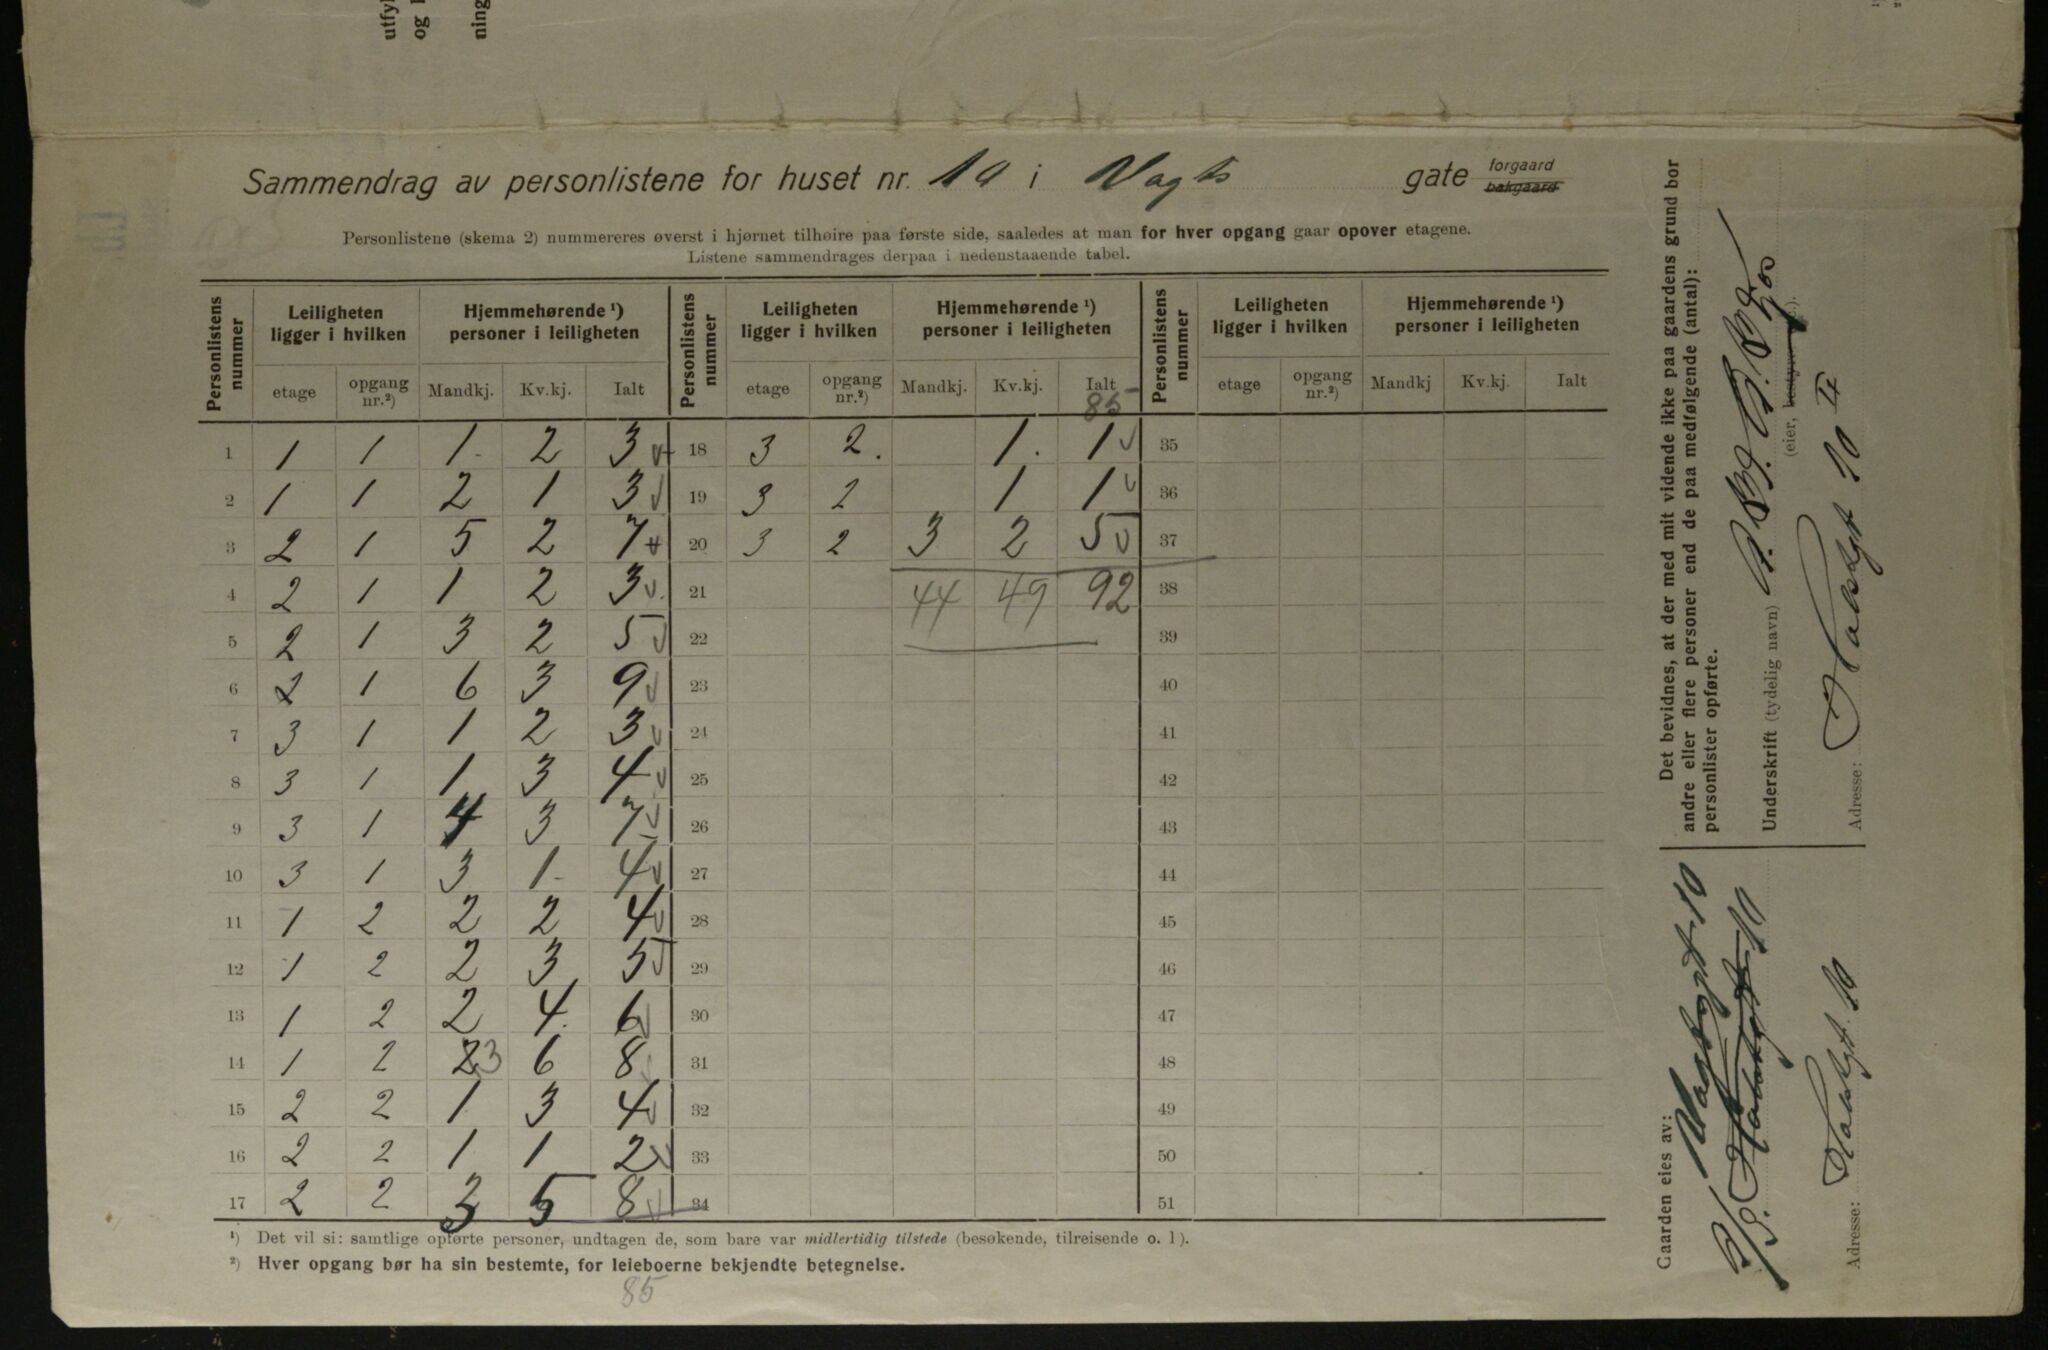 utfyl
og
ning
Sammendrag av personlistene for huset nr. 10 i Vagts gate forgaard
bakgaard
Personlistene (skema 2) nummereres øverst i hjørnet tilhøire paa første side, saaledes at man for hver opgang gaar opover etagene.
Listene sammendrages derpaa i nedenstaaende tabel.
Personlistens nummer | Leiligheten ligger i hvilken | Hjemmehørende ¹) personer i leiligheten | Personlistens nummer | Leiligheten ligger i hvilken | Hjemmehørende ¹) personer i leiligheten | Personlistens nummer | Leiligheten ligger i hvilken | Hjemmehørende ¹) personer i leiligheten
etage | opgang nr.²) | Mandkj. | Kv.kj. | Ialt | etage | opgang nr.²) | Mandkj. | Kv.kj. | Ialt | etage | opgang nr.²) | Mandkj | Kv.kj. | Ialt
85
1 1 1 1 2 3 | 18 3 2. 1. 1 | 35
2 1 1 2 1 3 | 19 3 2 1 1 | 36
3 2 1 5 2 7 | 20 3 2 3 2 5 | 37
4 2 1 1 2 3 | 21 44 49 92 | 38
5 2 1 3 2 5 | 22 | 39
6 2 1 6 3 9 | 23 | 40
7 3 1 1 2 3 | 24 | 41
8 3 1 1 3 4 | 25 | 42
9 3 1 4 3 7 | 26 | 43
10 3 1 3 1 4 | 27 | 44
11 1 2 2 2 4 | 28 | 45
12 1 2 2 3 5 | 29 | 46
13 1 2 2 4. 6 | 30 | 47
14 1 2 2 3 6 8 | 31 | 48
15 2 2 1 3 4 | 32 | 49
16 2 2 1 1 2 | 33 | 50
17 2 2 3 5 8 | 34 | 51
¹) Det vil si: samtlige opførte personer, undtagen de, som bare var midlertidig tilstede (besøkende, tilreisende o. l).
²) Hver opgang bør ha sin bestemte, for leieboerne bekjendte betegnelse.
85
Det bevidnes, at der med mit vidende ikke paa gaardens grund bor
andre eller flere personer end de paa medfølgende (antal):
personlister opførte.
Underskrift (tydelig navn)
(eier,
Adresse: 10 II
Gaarden eies av: Vagtsgt 10
Adresse: 10